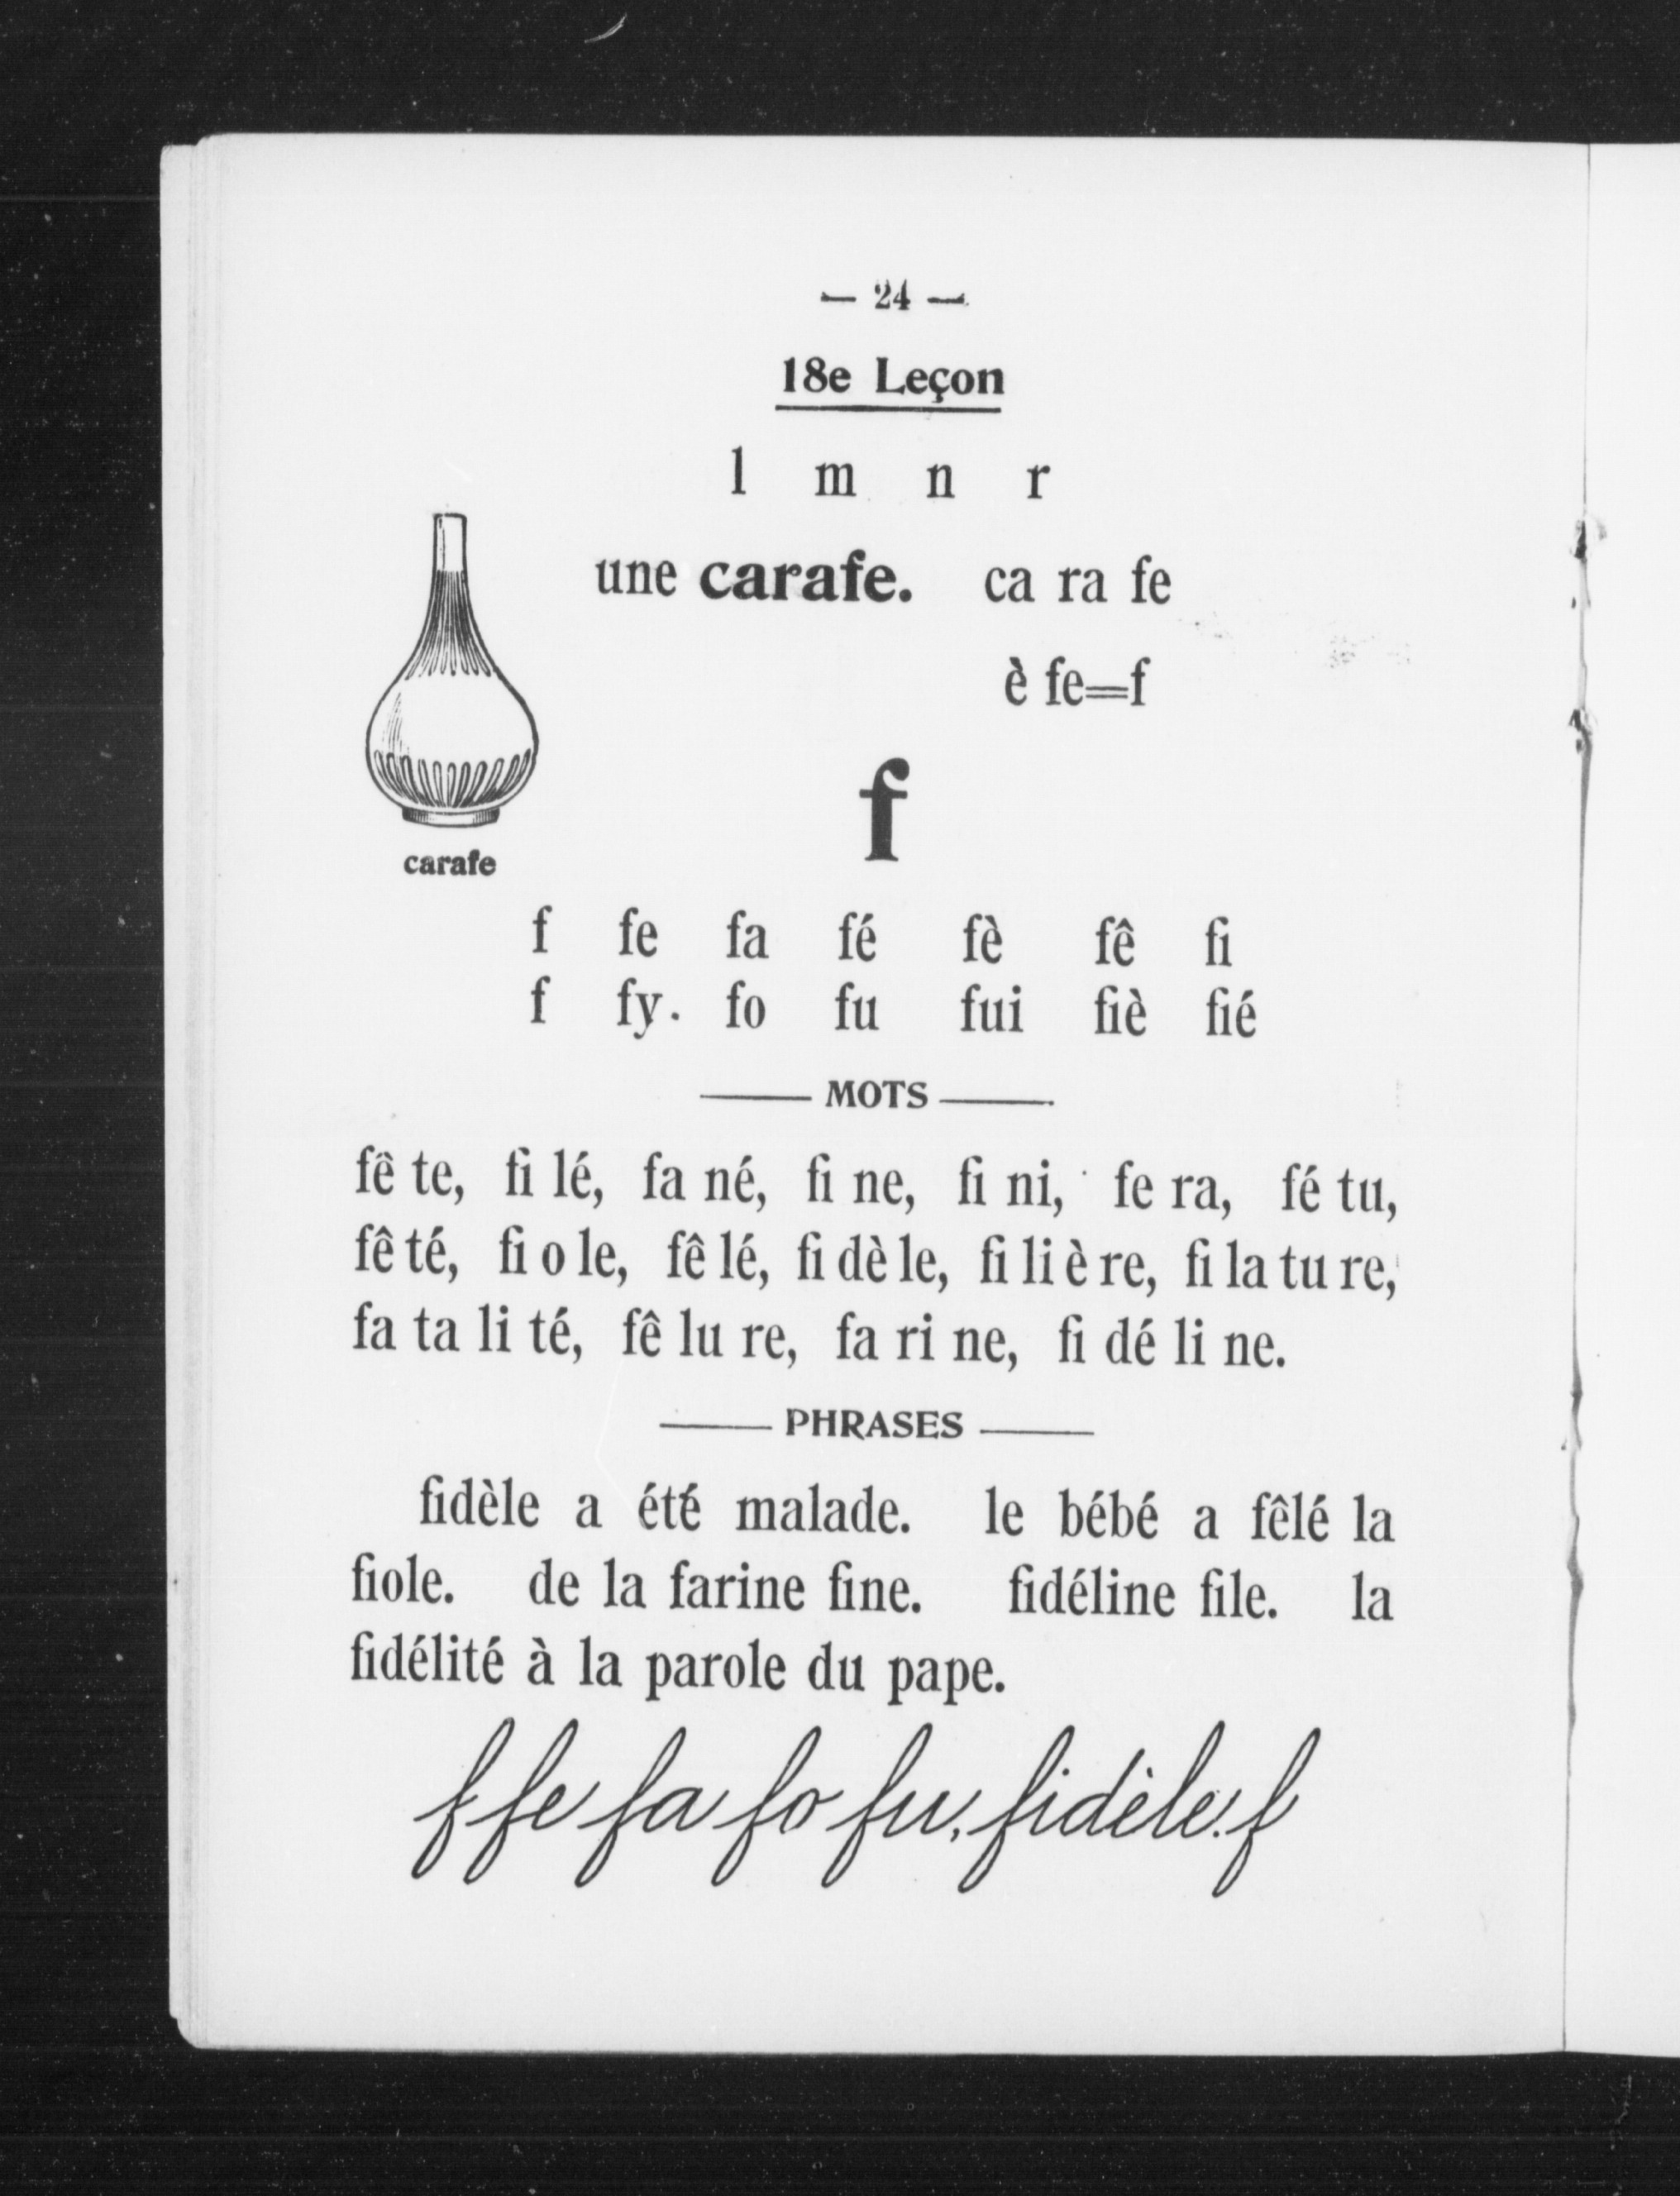 — 24 —
18e Leçon
l m n r
une carafe. ca ra fe
è fe=f
f
carafe
f fe fa fé fè fê fi
f fy. fo fu fui fiè fié
MOTS
fê te, fi lé, fa né, fi ne, fi ni, fe ra, fé tu,
fê té, fi o le, fê lé, fi dè le, fi li è re, fi la tu re,
fa ta li té, fê lu re, fa ri ne, fi dé li ne.
PHRASES
fidèle a été malade. le bébé a fêlé la
fiole. de la farine fine. fidéline file. la
fidélité à la parole du pape.
f fe fa fo fu, fidèle. f